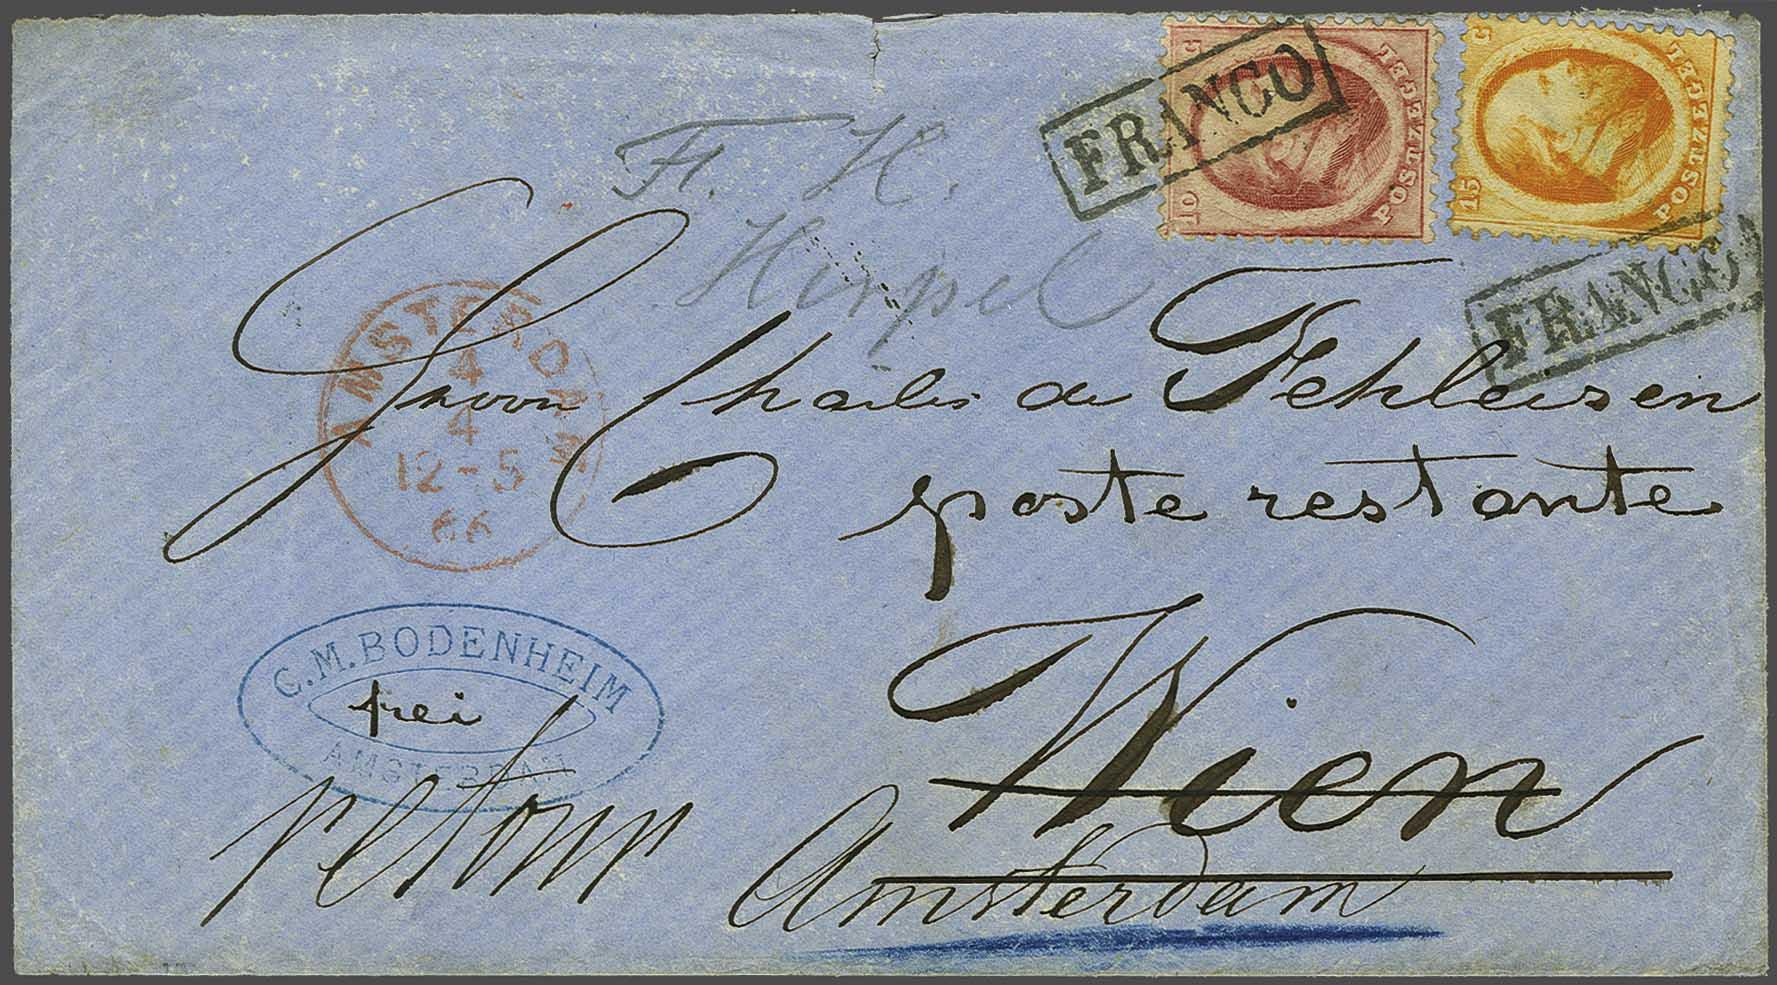 10 C POSTZEGEL
15 C POSTZEGEL
FRANCO
FRANCO
Ft. H.
AMSTERDAM
4
4
12-5
66
Charles de Fehleisen
poste restante
C. M. BODENHEIM
frei
AMSTERDAM
Wien
retour
Amsterdam